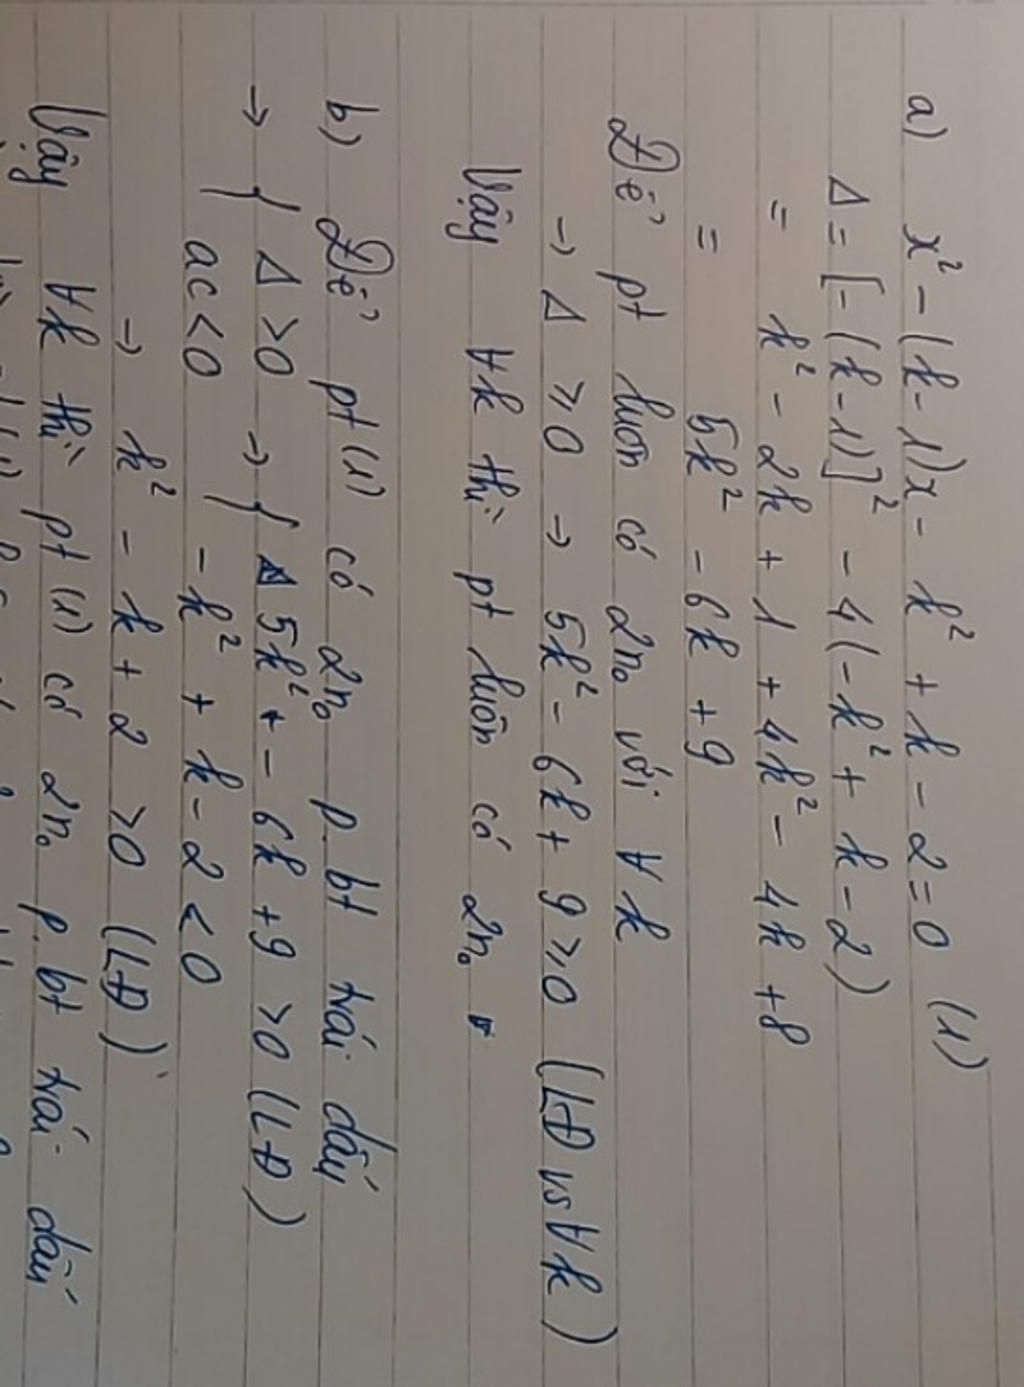 a) x² - (k-1)x - k² + k - 2 = 0 (1)
Δ = [-(k-1)]² - 4(-k² + k - 2)
= k² - 2k + 1 + 4k² - 4k + 8
= 5k² - 6k + 9
Để pt luôn có 2n₀ với ∀k
→ Δ ≥ 0 → 5k² - 6k + 9 ≥ 0 (LĐ vs ∀k)
Vậy ∀k thì pt luôn có 2n₀
b) Để pt (1) có 2n₀ p.bt trái dấu
→ { Δ > 0 → { 5k² - 6k + 9 > 0 (LĐ)
ac < 0 - k² + k - 2 < 0
→ k² - k + 2 > 0 (LĐ)
Vậy ∀k thì pt (1) có 2n₀ p.bt trái dấu